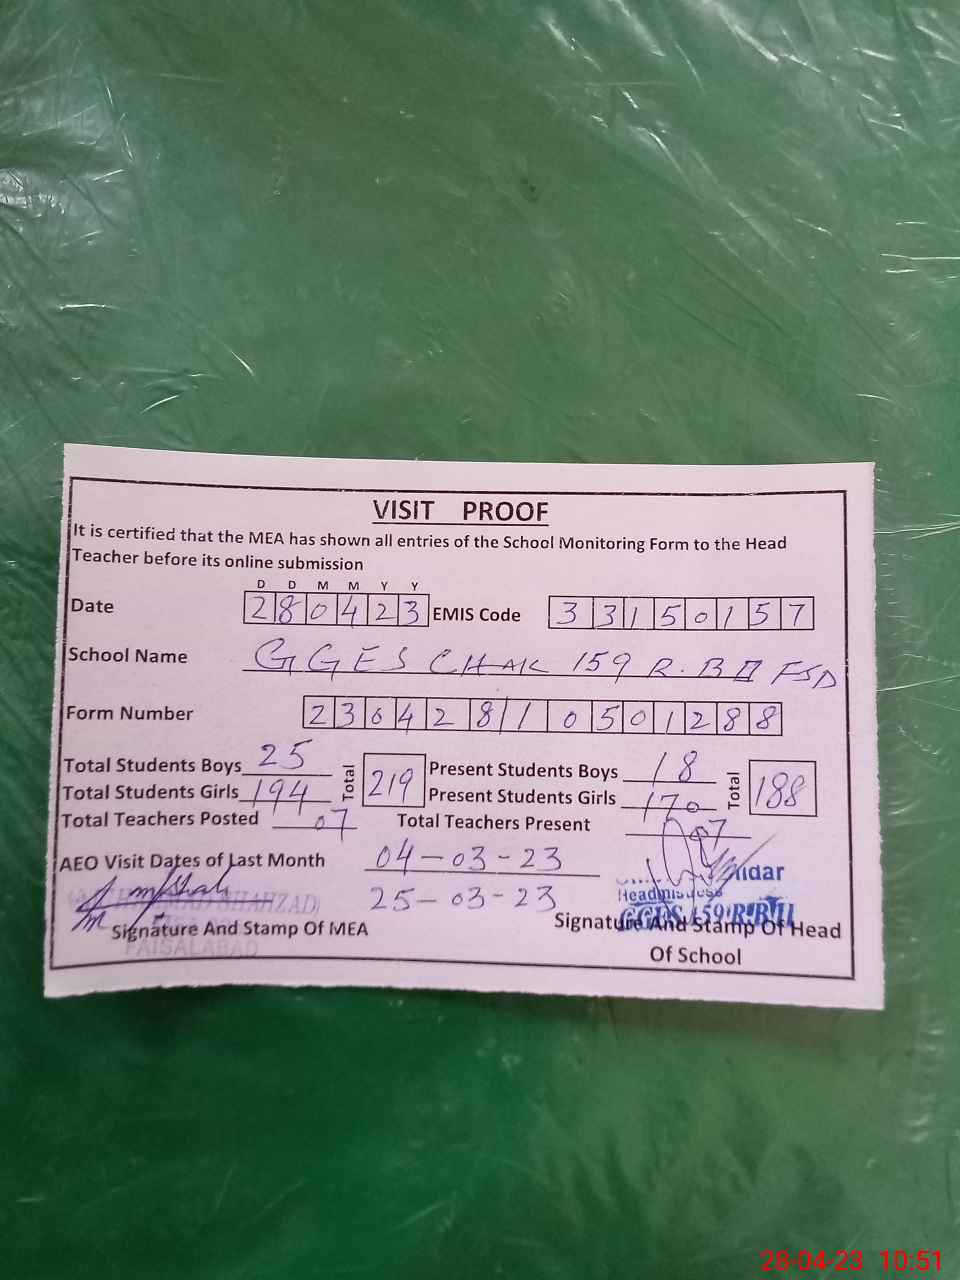 VISIT PROOF
It is certified that the MEA has shown all entries of the School Monitoring Form to the Head
Teacher before its online submission
D D M M Y Y
Date 280423 EMIS Code 33150157
School Name GGES CHAK 159 R.B II FSD
Form Number 230428110501288
Total Students Boys 25 Total 219 Present Students Boys 18 Total 188
Total Students Girls 194 Present Students Girls 170
Total Teachers Posted 07 Total Teachers Present 07
AEO Visit Dates of Last Month 04-03-23
25-03-23
Headmistress
GGES 159 R.B II
SHAHZAD
Signature And Stamp Of MEA
FAISALABAD
Signature And Stamp Of Head
Of School
28-04-23 10:51